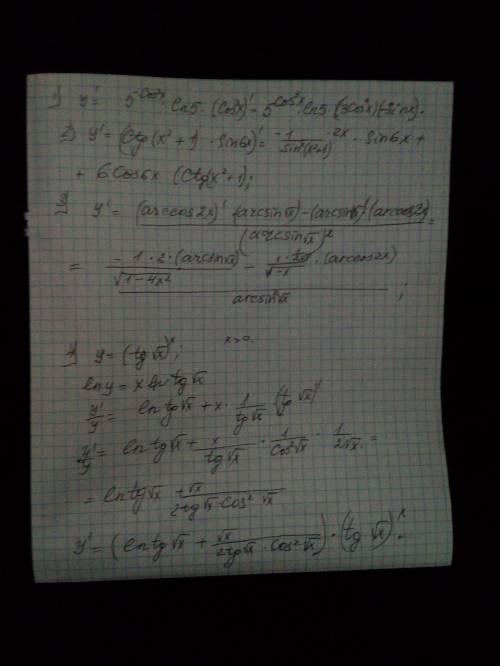 1) y' = 5^cos³x · ln5 · (cos³x)' = 5^cos³x · ln5 (3cos²x)(-sinx).
2) y' = (Ctg(x²+1) · sin6x)' = -1/sin²(x²+1) · 2x · sin6x +
+ 6cos6x (Ctg(x²+1);
3) y' = (arccos2x)' · (arcsin√x) - (arcsin√x)' · (arccos2x) / (arcsin√x)² =
= -1·2·(arcsin√x) / √1-4x² - · (arccos2x) / arcsin²√x ;
4) y = (tg√x)^x; x>0.
ln y = x ln tg√x
y'/y = ln tg√x + x · 1/tg√x (tg√x)'
y'/y = ln tg√x + x/tg√x · 1/cos²√x · 1/2√x =
= ln tg√x +√x/2tg√x·cos²√x
y' = (ln tg√x + √x/2tg√x·cos²√x) · (tg√x)^x.